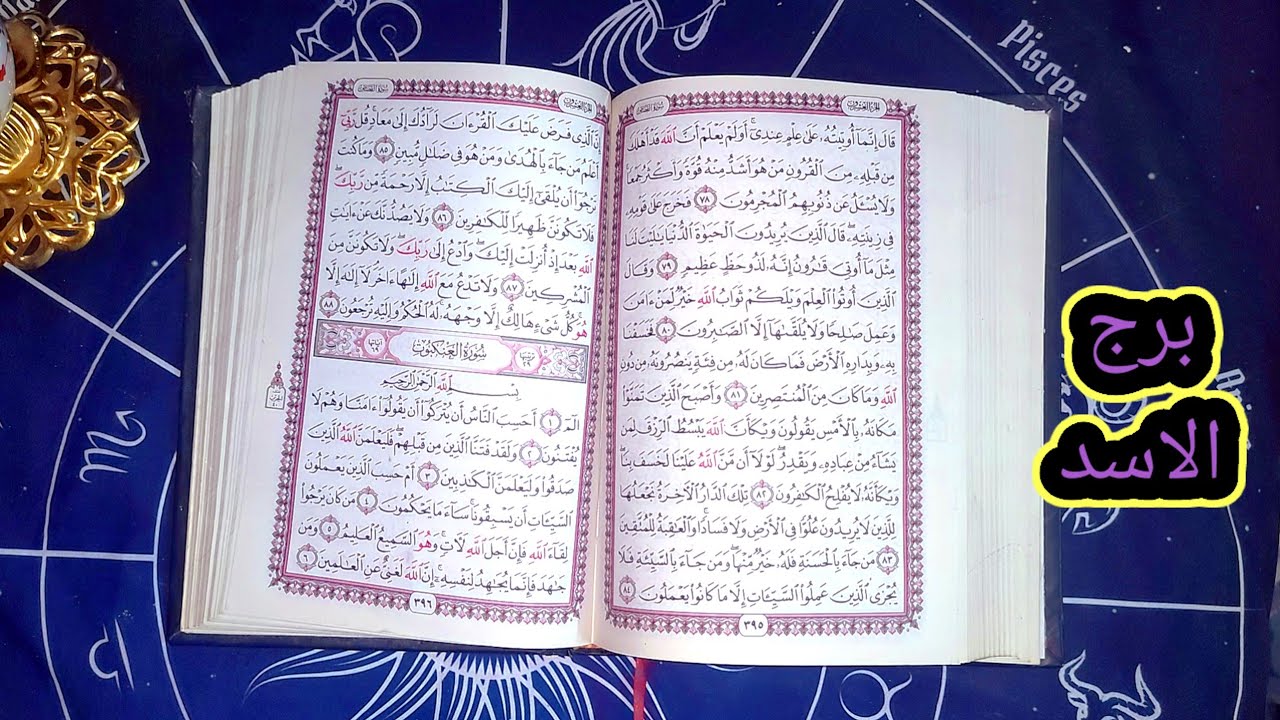 الجزء العشرون
سورة القصص
قَالَ إِنَّمَآ أُوتِيتُهُۥ عَلَىٰ عِلْمٍ عِندِىٓ ۚ أَوَلَمْ يَعْلَمْ أَنَّ ٱللَّهَ قَدْ أَهْلَكَ
مِن قَبْلِهِۦ مِنَ ٱلْقُرُونِ مَنْ هُوَ أَشَدُّ مِنْهُ قُوَّةً وَأَكْثَرُ جَمْعًا ۚ
وَلَا يُسْـَٔلُ عَن ذُنُوبِهِمُ ٱلْمُجْرِمُونَ ٧٨ فَخَرَجَ عَلَىٰ قَوْمِهِۦ
فِى زِينَتِهِۦ ۖ قَالَ ٱلَّذِينَ يُرِيدُونَ ٱلْحَيَوٰةَ ٱلدُّنْيَا يَـٰلَيْتَ لَنَا
مِثْلَ مَآ أُوتِىَ قَـٰرُونُ إِنَّهُۥ لَذُو حَظٍّ عَظِيمٍ ٧٩ وَقَالَ
ٱلَّذِينَ أُوتُوا۟ ٱلْعِلْمَ وَيْلَكُمْ ثَوَابُ ٱللَّهِ خَيْرٌ لِّمَنْ ءَامَنَ
وَعَمِلَ صَـٰلِحًا وَلَا يُلَقَّىٰهَآ إِلَّا ٱلصَّـٰبِرُونَ ٨٠ فَخَسَفْنَا
بِهِۦ وَبِدَارِهِ ٱلْأَرْضَ فَمَا كَانَ لَهُۥ مِن فِئَةٍ يَنصُرُونَهُۥ مِن دُونِ
ٱللَّهِ وَمَا كَانَ مِنَ ٱلْمُنتَصِرِينَ ٨١ وَأَصْبَحَ ٱلَّذِينَ تَمَنَّوْا۟
مَكَانَهُۥ بِٱلْأَمْسِ يَقُولُونَ وَيْكَأَنَّ ٱللَّهَ يَبْسُطُ ٱلرِّزْقَ لِمَن
يَشَآءُ مِنْ عِبَادِهِۦ وَيَقْدِرُ ۖ لَوْلَآ أَن مَّنَّ ٱللَّهُ عَلَيْنَا لَخَسَفَ بِنَا ۖ
وَيْكَأَنَّهُۥ لَا يُفْلِحُ ٱلْكَـٰفِرُونَ ٨٢ تِلْكَ ٱلدَّارُ ٱلْـَٔاخِرَةُ نَجْعَلُهَا
لِلَّذِينَ لَا يُرِيدُونَ عُلُوًّا فِى ٱلْأَرْضِ وَلَا فَسَادًا ۚ وَٱلْعَـٰقِبَةُ لِلْمُتَّقِينَ
٨٣ مَن جَآءَ بِٱلْحَسَنَةِ فَلَهُۥ خَيْرٌ مِّنْهَا ۖ وَمَن جَآءَ بِٱلسَّيِّئَةِ فَلَا
يُجْزَى ٱلَّذِينَ عَمِلُوا۟ ٱلسَّيِّـَٔاتِ إِلَّا مَا كَانُوا۟ يَعْمَلُونَ ٨٤
٣٩٥
الجزء العشرون
سورة القصص
إِنَّ ٱلَّذِى فَرَضَ عَلَيْكَ ٱلْقُرْءَانَ لَرَآدُّكَ إِلَىٰ مَعَادٍ ۚ قُل رَّبِّىٓ
أَعْلَمُ مَن جَآءَ بِٱلْهُدَىٰ وَمَنْ هُوَ فِى ضَلَـٰلٍ مُّبِينٍ ٨٥ وَمَا كُنتَ
تَرْجُوٓا۟ أَن يُلْقَىٰٓ إِلَيْكَ ٱلْكِتَـٰبُ إِلَّا رَحْمَةً مِّن رَّبِّكَ ۖ
فَلَا تَكُونَنَّ ظَهِيرًا لِّلْكَـٰفِرِينَ ٨٦ وَلَا يَصُدُّنَّكَ عَنْ ءَايَـٰتِ
ٱللَّهِ بَعْدَ إِذْ أُنزِلَتْ إِلَيْكَ ۖ وَٱدْعُ إِلَىٰ رَبِّكَ ۖ وَلَا تَكُونَنَّ مِنَ
ٱلْمُشْرِكِينَ ٨٧ وَلَا تَدْعُ مَعَ ٱللَّهِ إِلَـٰهًا ءَاخَرَ ۘ لَآ إِلَـٰهَ إِلَّا
هُوَ ۚ كُلُّ شَىْءٍ هَالِكٌ إِلَّا وَجْهَهُۥ ۚ لَهُ ٱلْحُكْمُ وَإِلَيْهِ تُرْجَعُونَ ٨٨
سُورَةُ العَنكَبُوتِ
بِسْمِ ٱللَّهِ ٱلرَّحْمَـٰنِ ٱلرَّحِيمِ
الٓمٓ ١ أَحَسِبَ ٱلنَّاسُ أَن يُتْرَكُوٓا۟ أَن يَقُولُوٓا۟ ءَامَنَّا وَهُمْ لَا
يُفْتَنُونَ ٢ وَلَقَدْ فَتَنَّا ٱلَّذِينَ مِن قَبْلِهِمْ ۖ فَلَيَعْلَمَنَّ ٱللَّهُ ٱلَّذِينَ
صَدَقُوا۟ وَلَيَعْلَمَنَّ ٱلْكَـٰذِبِينَ ٣ أَمْ حَسِبَ ٱلَّذِينَ يَعْمَلُونَ
ٱلسَّيِّـَٔاتِ أَن يَسْبِقُونَا ۚ سَآءَ مَا يَحْكُمُونَ ٤ مَن كَانَ يَرْجُوا۟
لِقَآءَ ٱللَّهِ فَإِنَّ أَجَلَ ٱللَّهِ لَـَٔاتٍ ۚ وَهُوَ ٱلسَّمِيعُ ٱلْعَلِيمُ ٥ وَمَن
جَـٰهَدَ فَإِنَّمَا يُجَـٰهِدُ لِنَفْسِهِۦٓ ۚ إِنَّ ٱللَّهَ لَغَنِىٌّ عَنِ ٱلْعَـٰلَمِينَ ٦
٣٩٦
Pisces
برج
الاسد